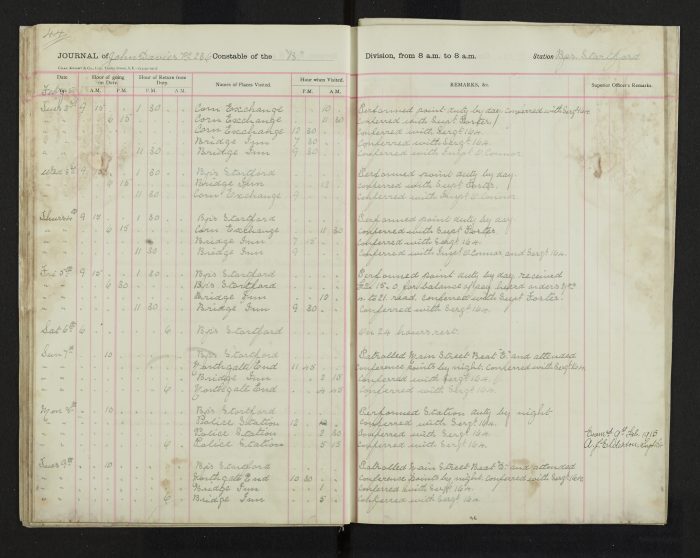 JOURNAL of John Davies PC 286 Constable of the "B" Division, from 8 a.m. to 8 a.m. Station Bps Stortford
Date Hour of going on Duty. Hour of Return from Duty. Names of Places Visited. Hour when Visited. REMARKS, &c. Superior Officer's Remarks.
A.M. P.M. P.M. A.M. P.M. A.M.
9 15 1 30 Corn Exchange 10 Performed point duty by day conferred with Sergt 16A.
6 15 Corn Exchange 11 30 Conferred with Supt Forster
Corn Exchange 12 30 Conferred with Sergt 16A.
Bridge Inn 7 30 Conferred with Sergt 16A.
11 30 Bridge Inn 9 30 Conferred with Inspt O'Connor
Wed 9 15 1 30 Bps Stortford Performed point duty by day
6 15 Bridge Inn 12 Conferred with Supt Forster.
11 30 Corn Exchange 9 Conferred with Inspt O'Connor
Thurs 4th 9 15 1 30 Bps Stortford Performed point duty by day
6 15 Corn Exchange 11 30 Conferred with Supt Forster
Bridge Inn 7 15 Conferred with Sergt 16A.
11 30 Bridge Inn 9 Conferred with Inspt O'Connor and Sergt 16A.
Fri 5th 9 15 1 30 Bps Stortford Performed point duty by day received
6 30 Bps Stortford for balance of pay heard orders
Bridge Inn 10 to 21 read. Conferred with Supt Forster.
11 30 Bridge Inn 9 30 Conferred with Sergt 16A.
Sat 6th 6 6 Bps Stortford On 24 hours rest.
Sun 7th 10 Bps Stortford Patrolled Main Street Beat "E" and attended
Northgate End 11 45 Conference points by night. Conferred with Sergt 16A.
Bridge Inn 2 15 Conferred with Sergt 16A.
6 Northgate End 4 45 Conferred with Sergt 16A.
Mon 8th 10 Bps Stortford Performed Station duty by night
Police Station 12 Conferred with Sergt 16A.
Police Station 2 30 Conferred with Sergt 16A. 9th Feb. 1915
6 Police Station 5 15 Conferred with Sergt 16A.
Tues 9th 10 Bps Stortford Patrolled Main Street Beat "E" and attended
Northgate End 10 30 Conference points by night. Conferred with Sergt 16A.
Bridge Inn Conferred with Sergt 16A.
6 Bridge Inn 5 Conferred with Sergt 16A.